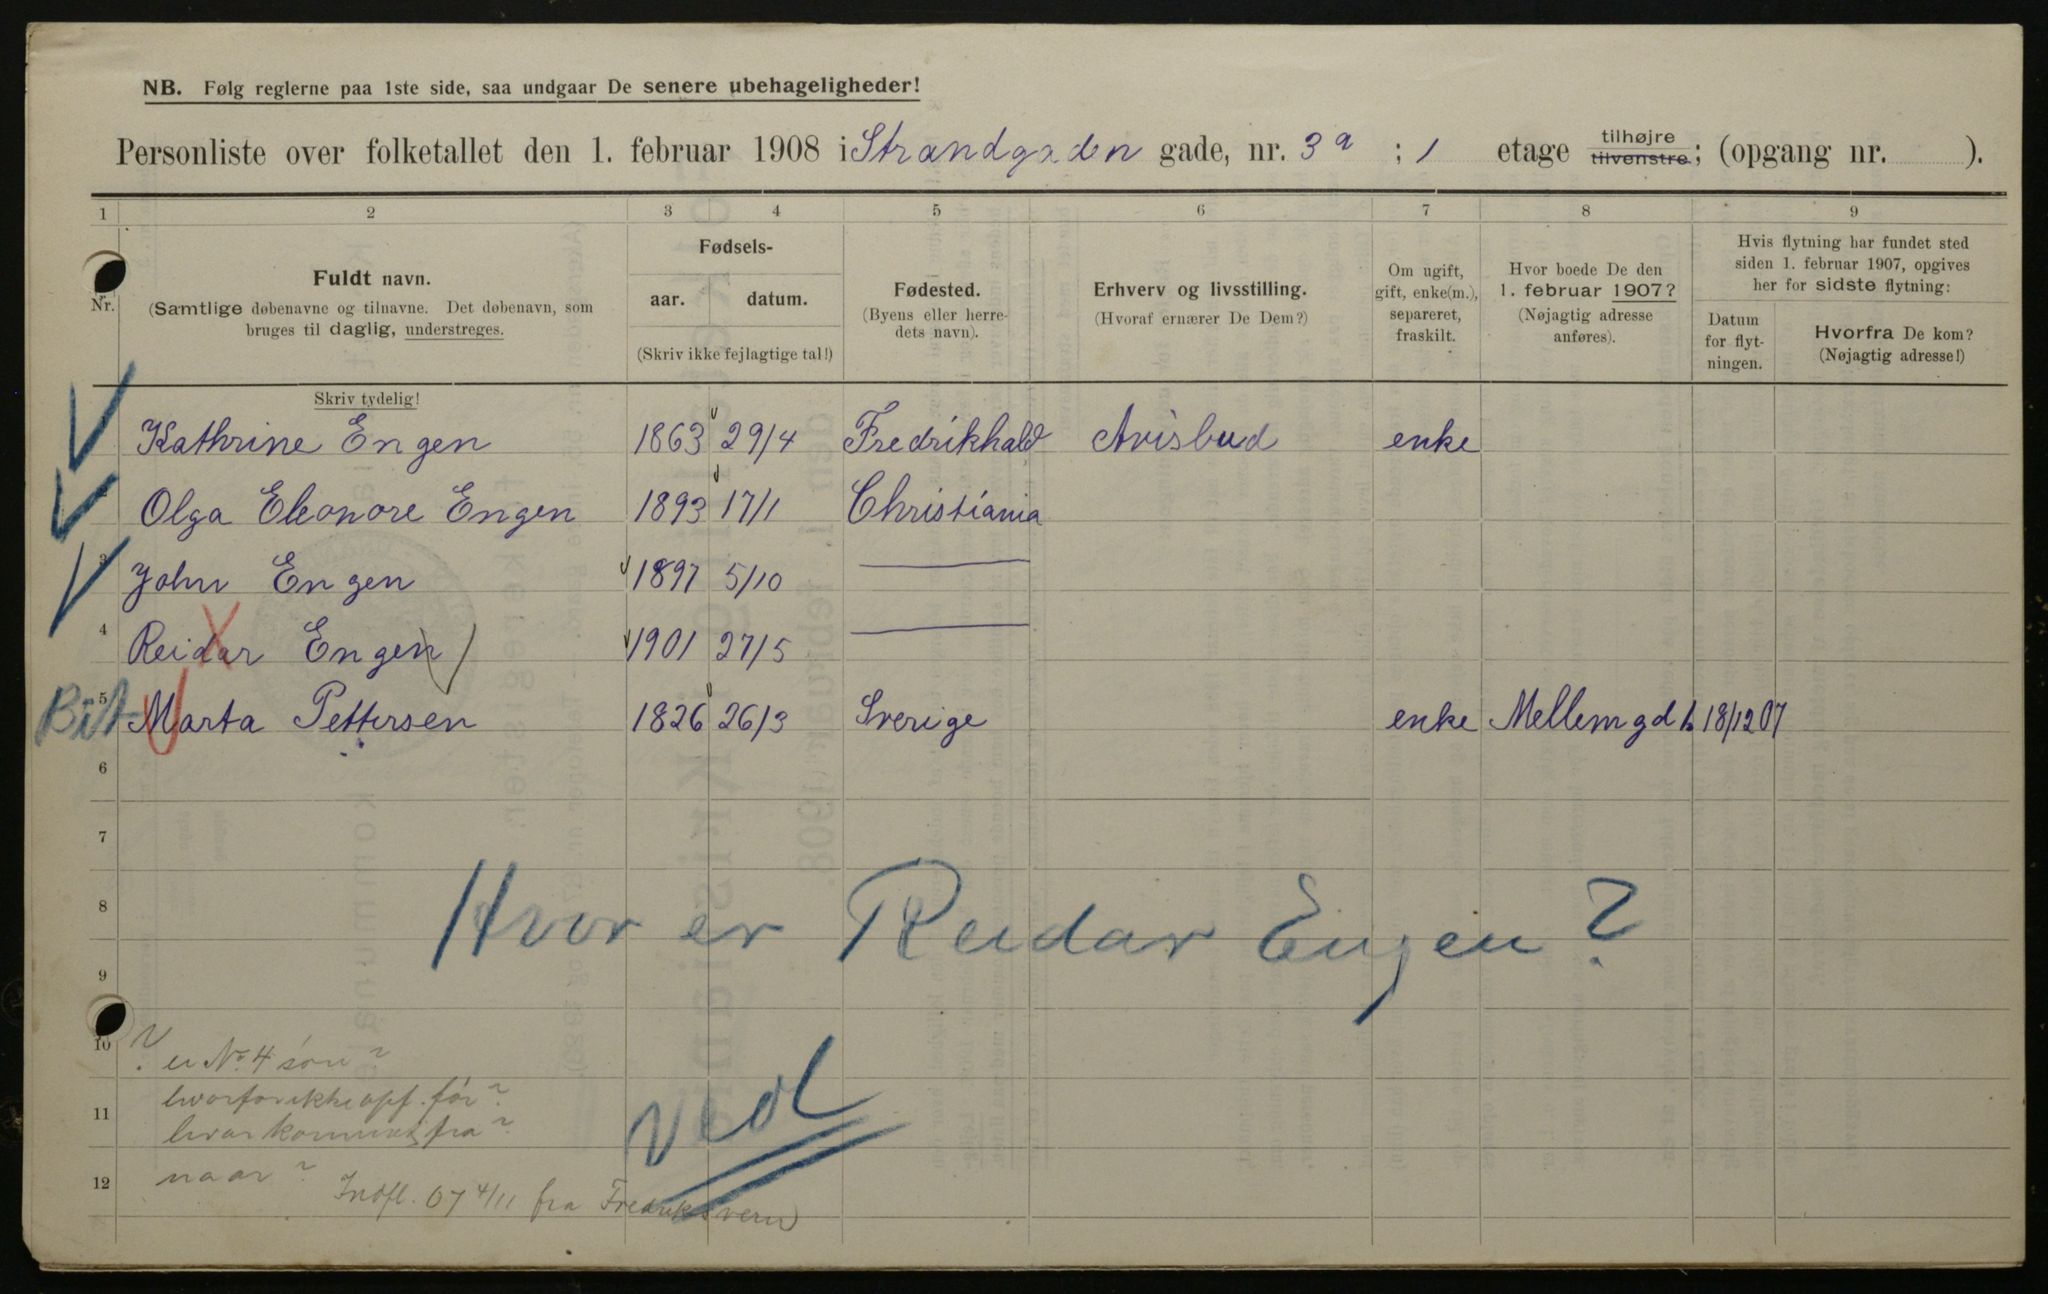 NB. Følg reglerne paa 1ste side, saa undgaar De senere ubehageligheder!
Personliste over folketallet den 1. februar 1908 i Strandgaden gade, nr. 3a ; 1 etage tilhøjre tilvenstre; (opgang nr. ).
1 2 3 4 5 6 7 8 9
Nr.
Fuldt navn.
(Samtlige døbenavne og tilnavne. Det døbenavn, som
bruges til daglig, understreges.
Skriv tydelig!
Fødsels-
aar. datum.
(Skriv ikke fejlagtige tal!)
Fødested.
(Byens eller herre-
dets navn).
Erhverv og livsstilling.
(Hvoraf ernærer De Dem?)
Om ugift,
gift, enke(m.),
separeret,
fraskilt.
Hvor boede De den
1. februar 1907?
(Nøjagtig adresse
anføres).
Hvis flytning har fundet sted
siden 1. februar 1907, opgives
her for sidste flytning:
Datum
for flyt-
ningen.
Hvorfra De kom?
(Nøjagtig adresse!)
Kathrine Engen 1863 29/4 Fredrikhald Avisbud enke
Olga Eleonore Engen 1893 17/1 Christiania
3 John Engen 1897 5/10 —
4 Reidar Engen 1901 27/5 —
5 Marta Pettersen 1826 26/3 Sverige enke Mellemgd 18/12 07
6
7
8 Hvor er Reidar Engen?
9
10 ? er No 4 søn?
11 hvorfor ikke opf. før?
hvor kommet fra?
12 naar? Indfl. 07 4/11 fra Fredriksvern
ved